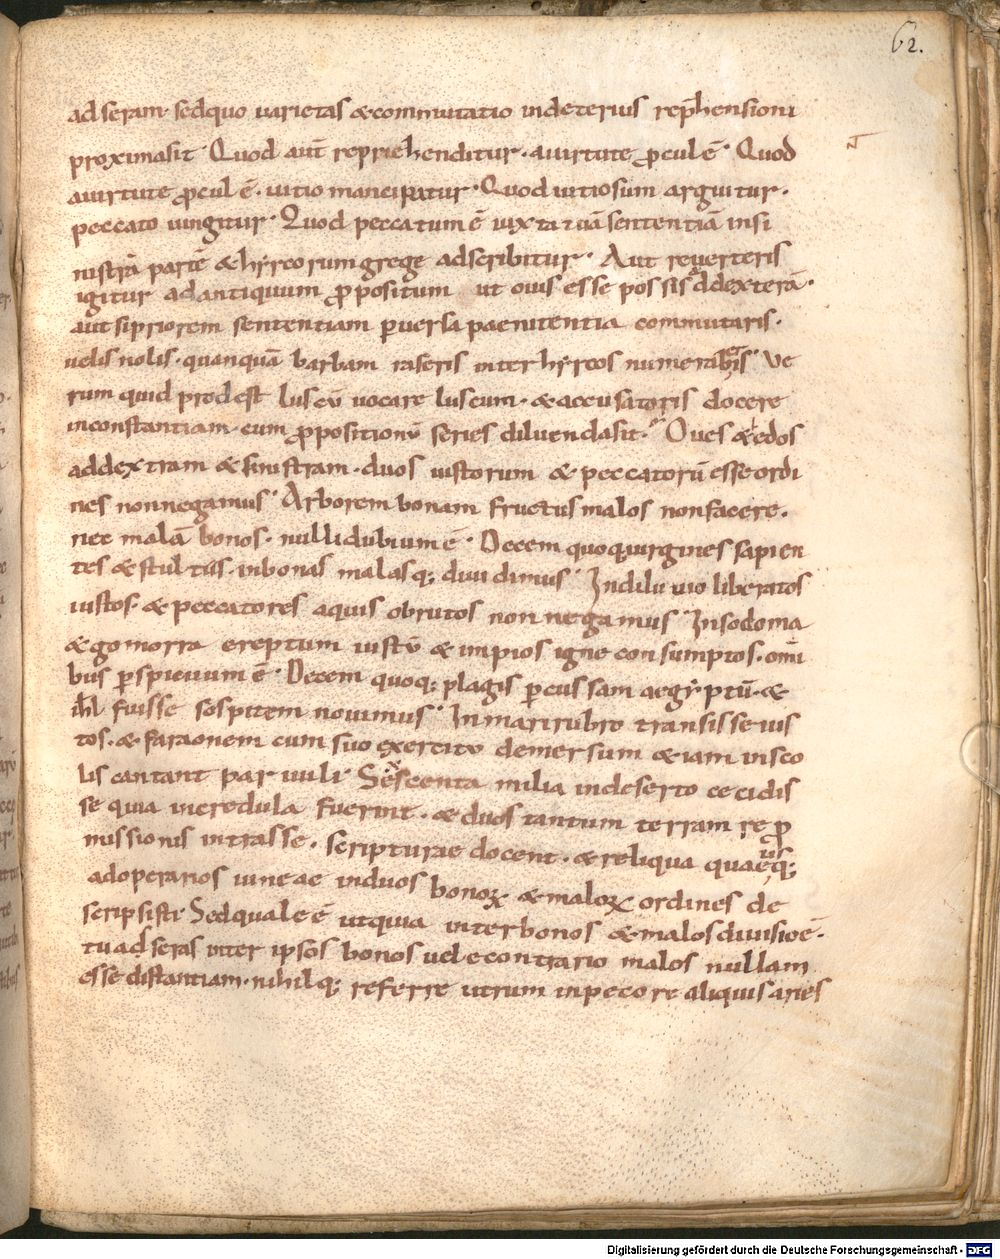 62.
adseram· sedquo uarietas &commutatio indeterius rep̄hensioni
proximasit· Quod aut̄ repriehenditur· auirtute ꝓcul ē· Quod
auirtute ꝓcul ē· uitio mancipatur· Quod uitiosum arguitur·
peccato iungitur· Quod peccatum ē iuxta tuā sententiā insi
nistrā partē & hyrcorum grege adscribitur· Aut reuerteris
igitur adantiquum ꝓpositum ut ouis esse possis addexterā·
aut si priorem sententiam ꝑuersa paenitentia commutaris·
uelis nolis· quanquā barbam raseris inter hyrcos numeraberis· Ve
rum quid prodest luscū uocare luscum· & accusatoris docere
inconstantiam· cum ꝓpositionū series diluenda sit· Oues & edos
addextram & sinistram· duos iustorum & peccatorū esse ordi
nes non negamus· Arborem bonam fructus malos non facere·
nec malā bonos· nulli dubium ē· Decem quoq; uirgines sapien
tes & stultas· inbonas malasq; diuidimus· Indiluuio liberatos
iustos· & peccatores aquis obrutos non negamus· Insodoma
& gomorra ereptum iustū & impios igne consumptos· omī
bus ꝑspicuum ē· Decem quoq; plagis ꝑcussam aegyptū· &
ih̄l fuisse sospitem nouimus· Inmari rubro transisse ius
tos· & faraonem cum suo exercitu demersum & iam insco
lis cantant paruuli· Sescenta milia indeserto cecidis
se quia incredula fuerint· & duos tantum terram repro
missionis intrasse· scripturae docent· & reliqua quae usq;
adoperarios uineae induos bonoꝝ & maloꝝ ordines de
scripsisti· Sedquale ē utquia inter bonos & malos diuisio ē·
tu adseras inter ipsos bonos uel econtrario malos nullam
esse distantiam· nihilq; referre utrum inpecore aliquis aries
Digitalisierung gefördert durch die Deutsche Forschungsgemeinschaft - DFG